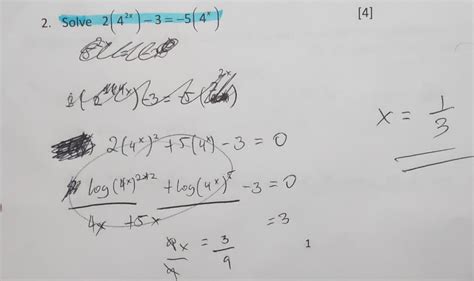 2. Solve 2(4^{2x}) − 3 = −5(4^x) [4]
2(4^x)² + 5(4^x) − 3 = 0
log(4x)^{2×2} + log(4^x)^5 − 3 = 0
4x + 5x = 3
9x/9 = 3/9
x = 1/3
1